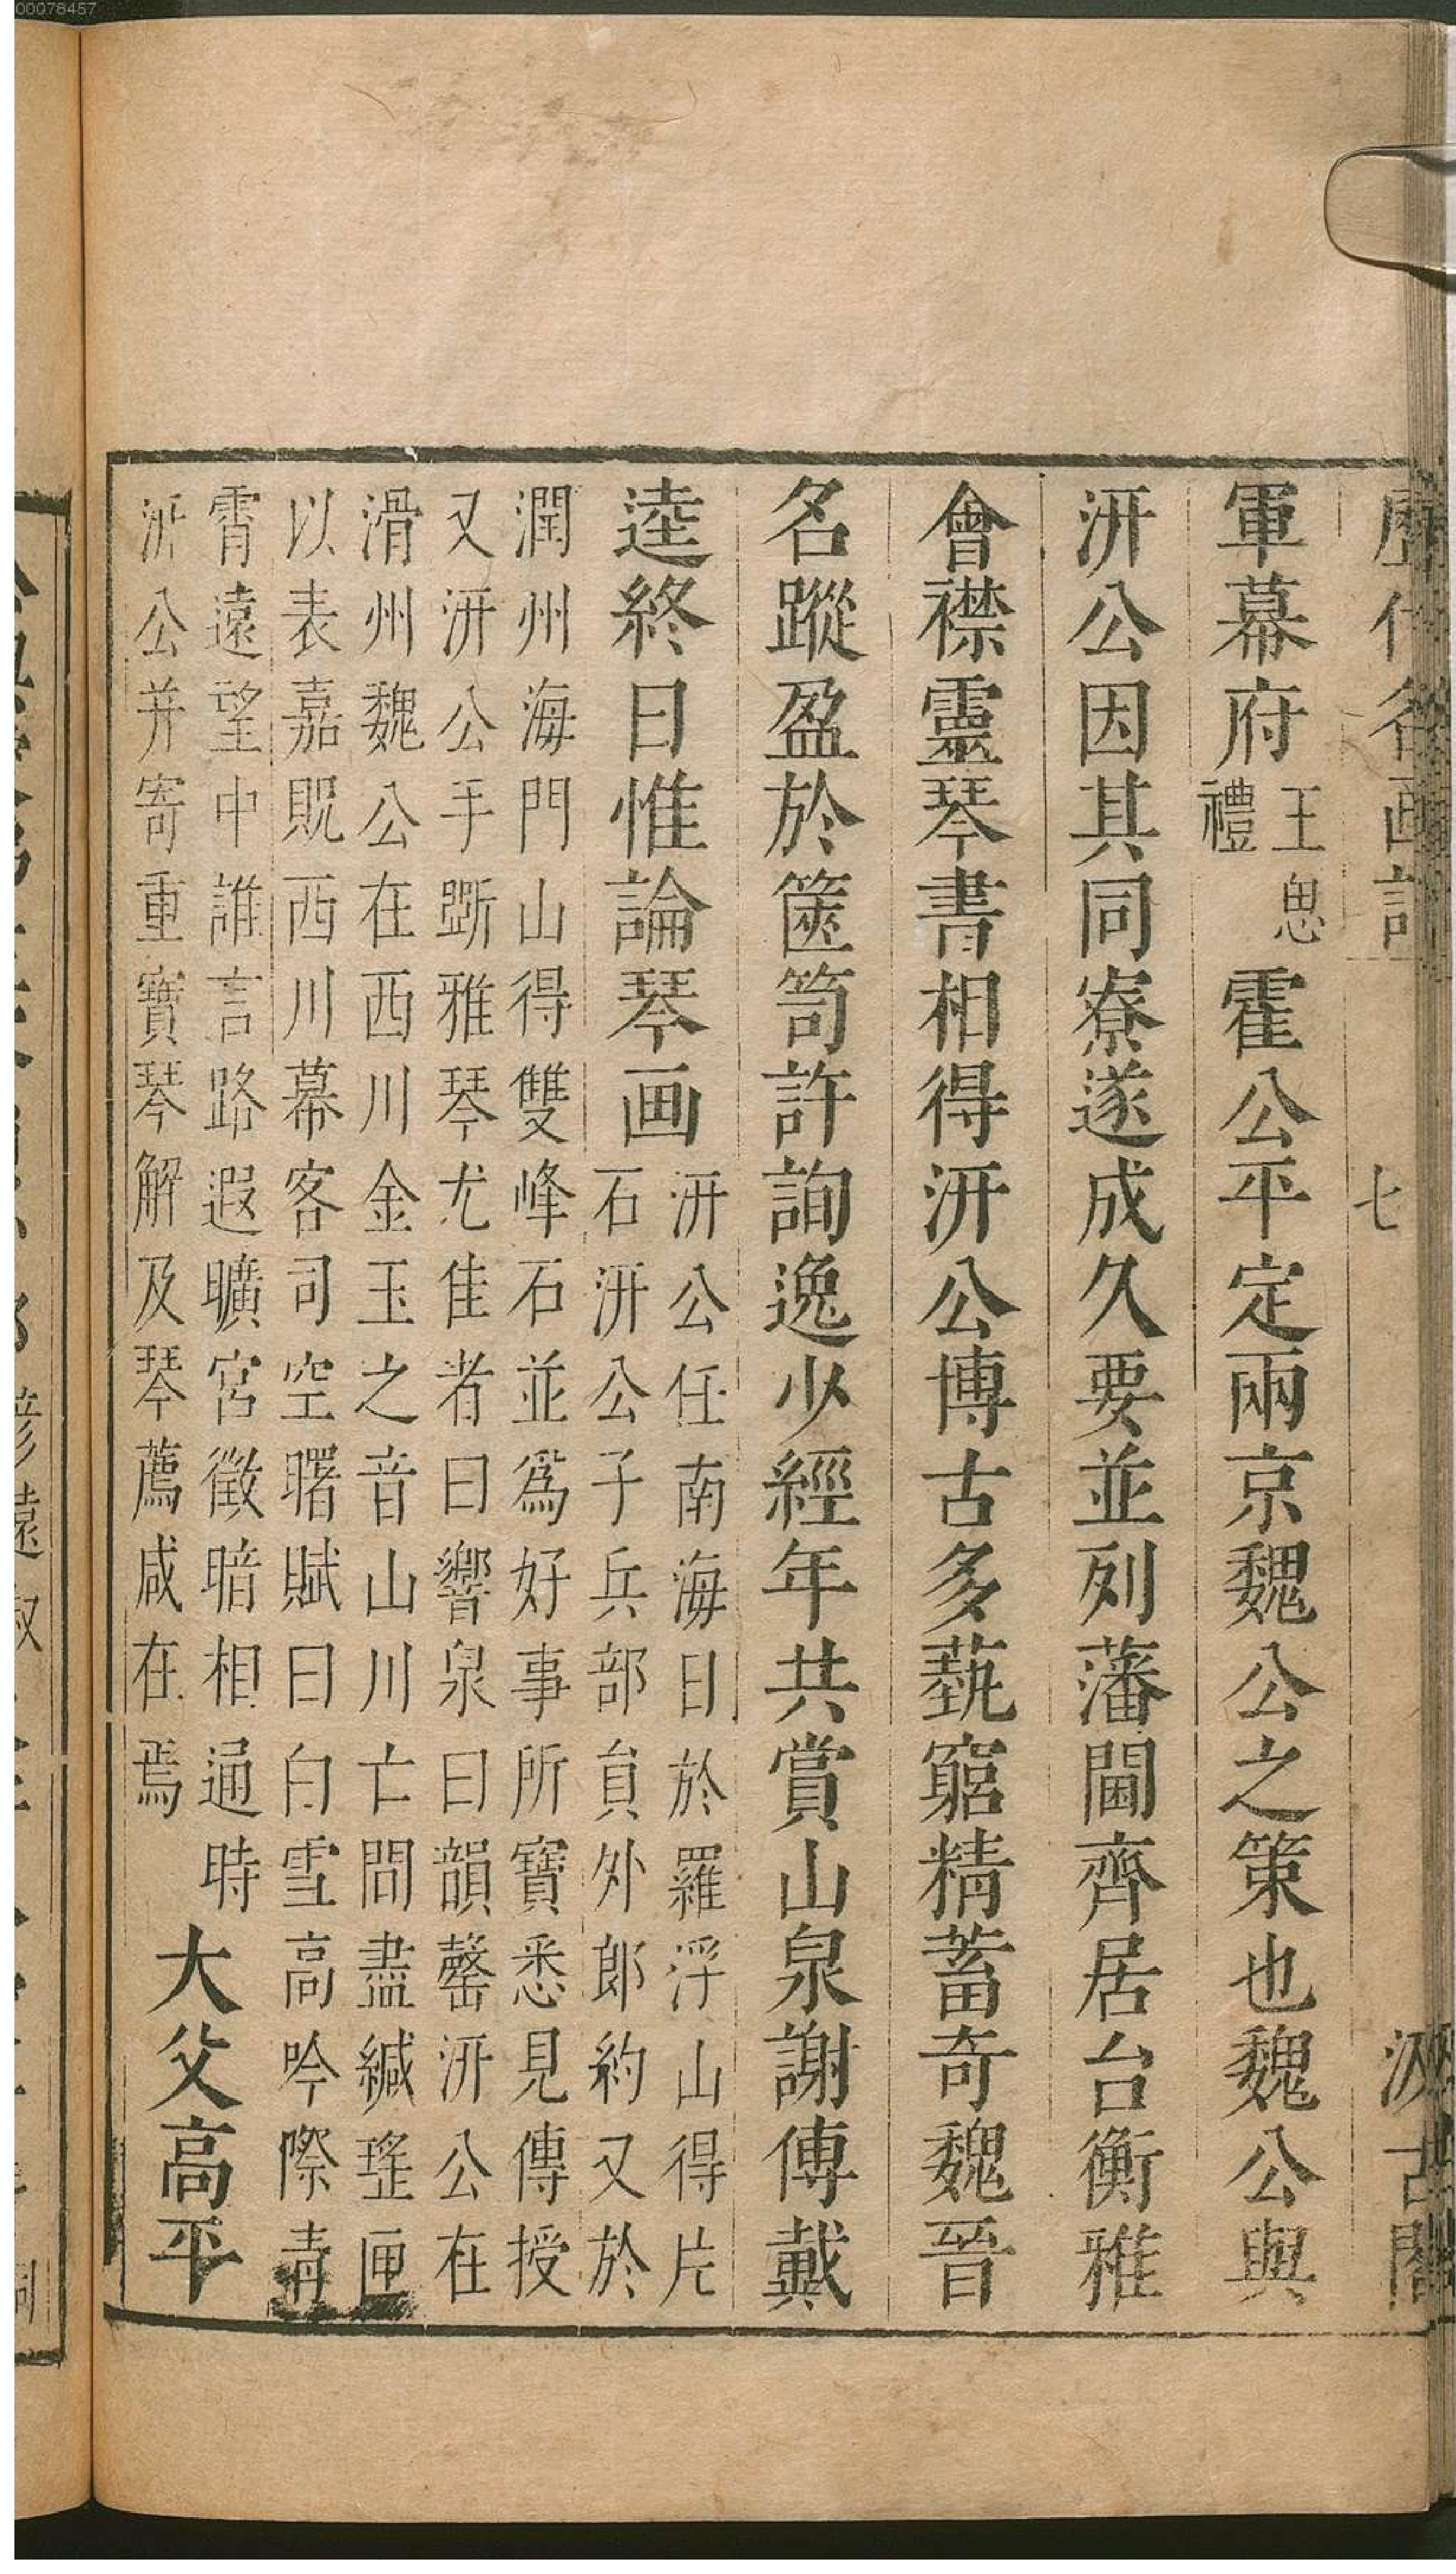 00078457
歷代名画記
七
汲古閣
軍幕府王思禮霍公平定兩京魏公之策也魏公與
汧公因其同寮遂成久要並列藩閫齊居台衡雅
會襟靈琴書相得汧公博古多蓺窮精蓄奇魏晉
名蹤盈於篋笥許詢逸少經年共賞山泉謝傅戴
逵終日惟論琴画汧公任南海日於羅浮山得片
石汧公子兵部貟外郎約又於
潤州海門山得雙峰石並爲好事所寶悉見傳授
又汧公手斵雅琴尤佳者曰響泉曰韻磬汧公在
滑州魏公在西川金玉之音山川亡問盡緘瑤匣
以表嘉貺西川幕客司空曙賦曰白雪高吟際青
霄遠望中誰言路遐曠宮徵暗相通時
汧公并寄重寶琴解及琴薦咸在焉
大父高平